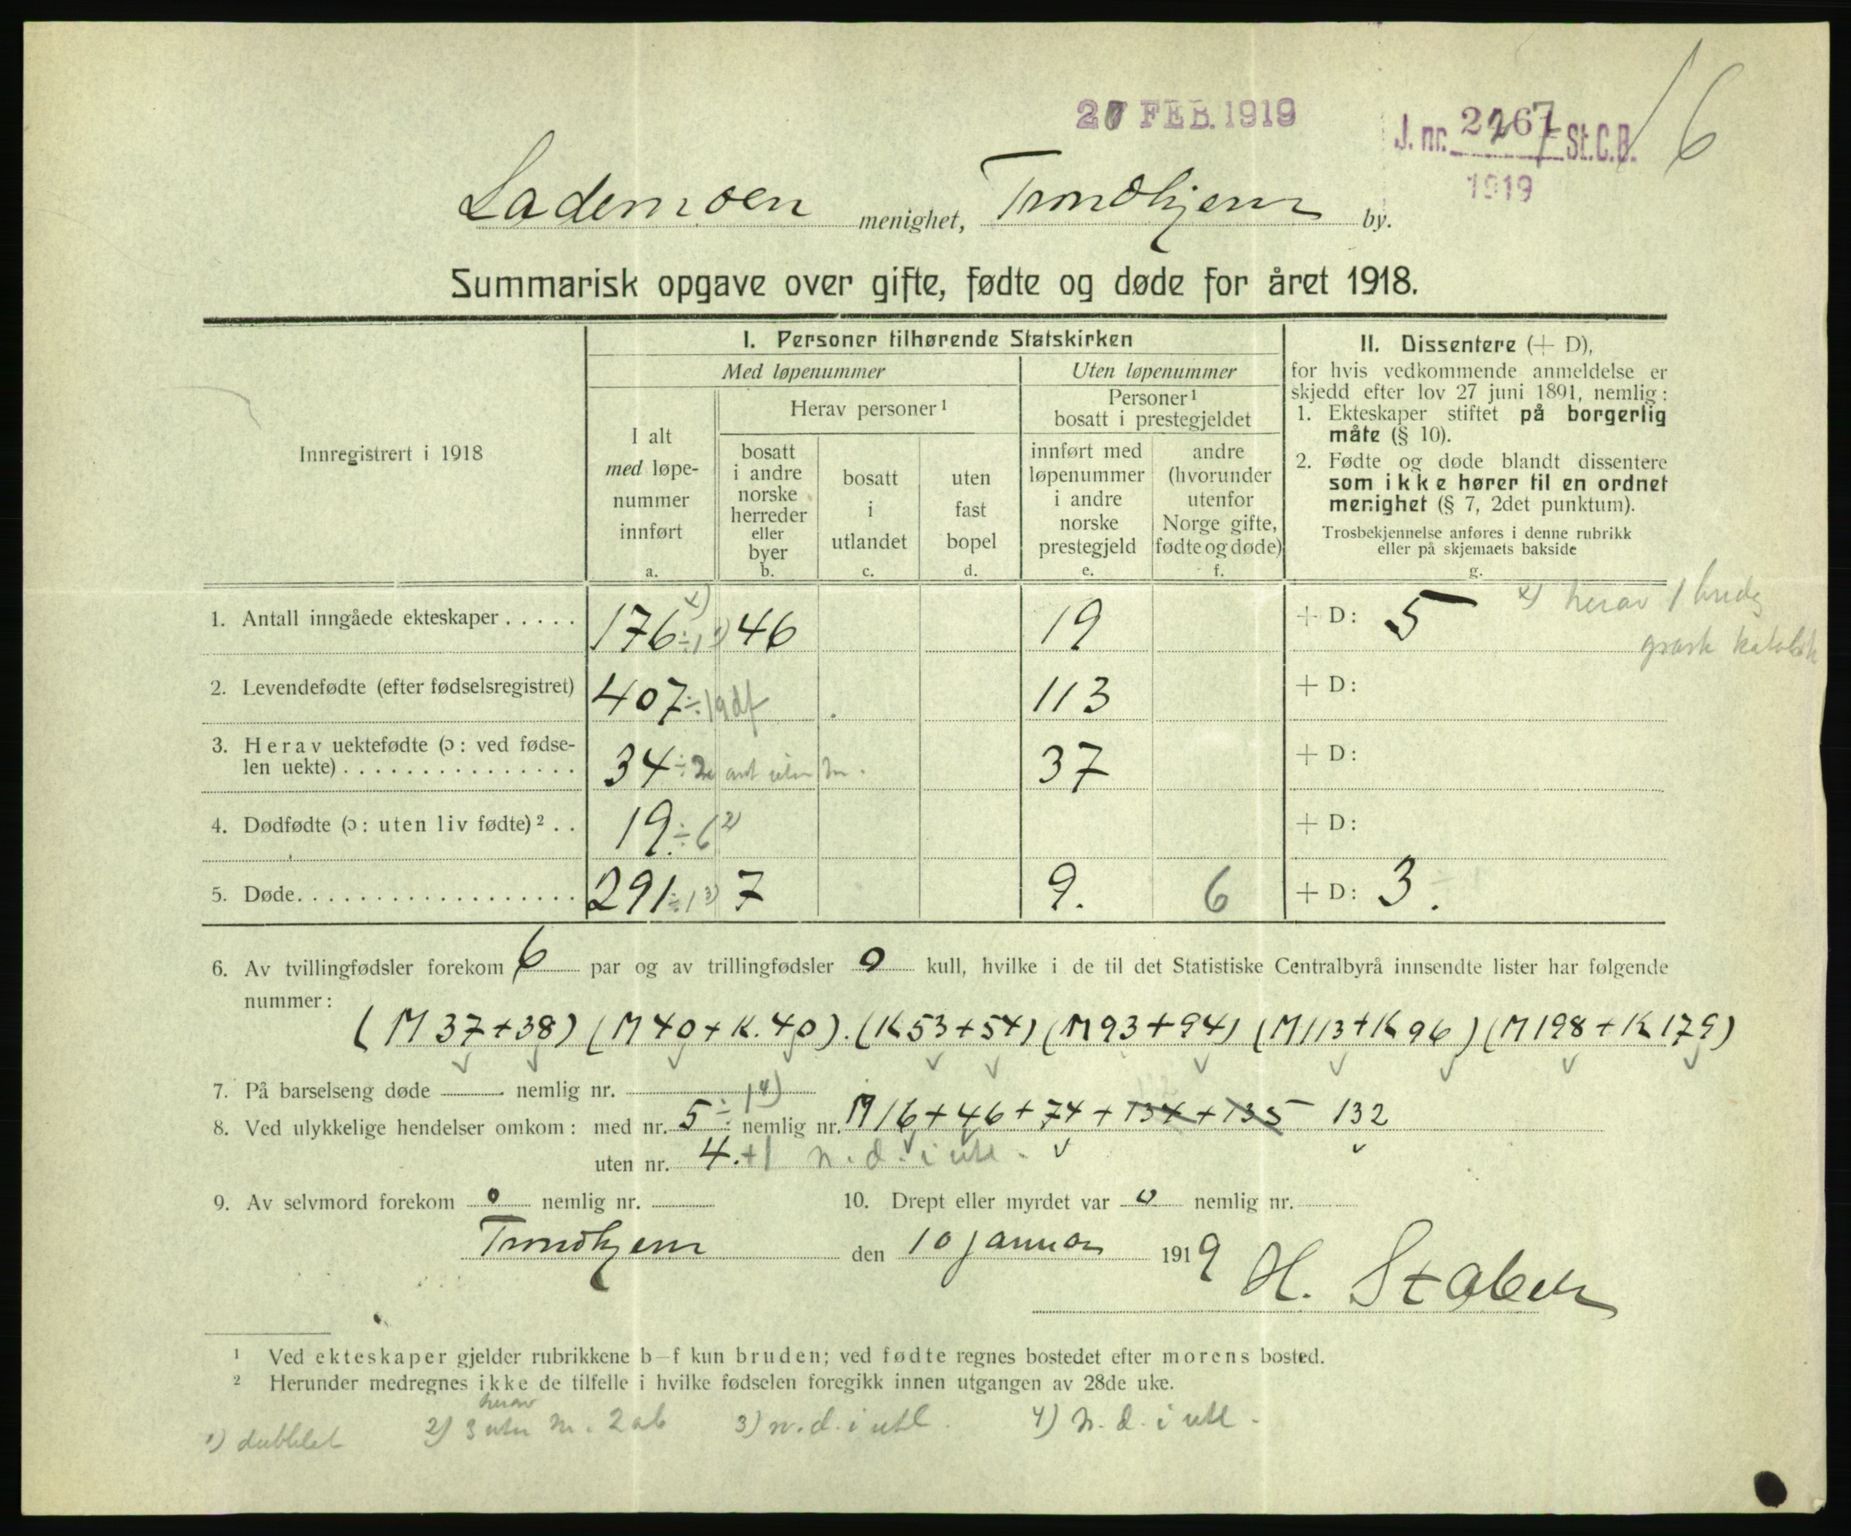 FEB. 1919
J. nr. St. C. B.
1919
16
Lademoen menighet, Trondhjem by.
Summarisk opgave over gifte, fødte og døde for året 1918.
Innregistrert i 1918
I. Personer tilhørende Statskirken
Med løpenummer
Uten løpenummer
I alt
med løpe-
nummer
innført
a.
Herav personer ¹
bosatt
i andre
norske
herreder
eller
byer
b.
bosatt
i
utlandet
c.
uten
fast
bopel
d.
Personer ¹
bosatt i prestegjeldet
innført med
løpenummer
i andre
norske
prestegjeld
e.
andre
(hvorunder
utenfor
Norge gifte,
fødte og døde)
f.
II. Dissentere (+ D),
for hvis vedkommende anmeldelse er
skjedd efter lov 27 juni 1891, nemlig:
1. Ekteskaper stiftet på borgerlig
måte (§ 10).
2. Fødte og døde blandt dissentere
som ikke hører til en ordnet
menighet (§ 7, 2det punktum).
Trosbekjennelse anføres i denne rubrikk
eller på skjemaets bakside
g.
1. Antall inngåede ekteskaper . . . . . 176 x) ÷ 1 ¹) 46 19 + D: 5 x) herav 1 brud
græsk katolsk
2. Levendefødte (efter fødselsregistret) 407 ÷ 1 gdf 113 + D:
3. Herav uektefødte (ɔ: ved fødse-
len uekte) . . . . . . . . . . . . . . . 34 ÷ 37 + D:
4. Dødfødte (ɔ: uten liv fødte) ² . . 19 ÷ 6 ²) + D:
5. Døde. . . . . . . . . . . . . . . . . . 291 ÷ 1 ³) 7 9. 6 + D: 3.
6. Av tvillingfødsler forekom 6 par og av trillingfødsler 0 kull, hvilke i de til det Statistiske Centralbyrå innsendte lister har følgende
nummer:
(M 37 + 38) (M 40 + K. 40). (K 53 + 54) (M 93 + 94) (M 113 + K 96) (M 198 + K 179)
7. På barselseng døde nemlig nr.
8. Ved ulykkelige hendelser omkom: med nr. 5 ÷ 1 4) nemlig nr. M 16 + 46 + 74 + 134 + 135 132
uten nr. 4. + 1 n. d. i utl.
9. Av selvmord forekom 0 nemlig nr. 10. Drept eller myrdet var 0 nemlig nr.
Trondhjem den 10 januar 1919 H. Stabell
¹ Ved ekteskaper gjelder rubrikkene b—f kun bruden; ved fødte regnes bostedet efter morens bosted.
² Herunder medregnes ikke de tilfelle i hvilke fødselen foregikk innen utgangen av 28de uke.
1) dubblet 2) herav 3 uten nr. 2 ab 3) n. d. i utl. 4) n. d. i utl.